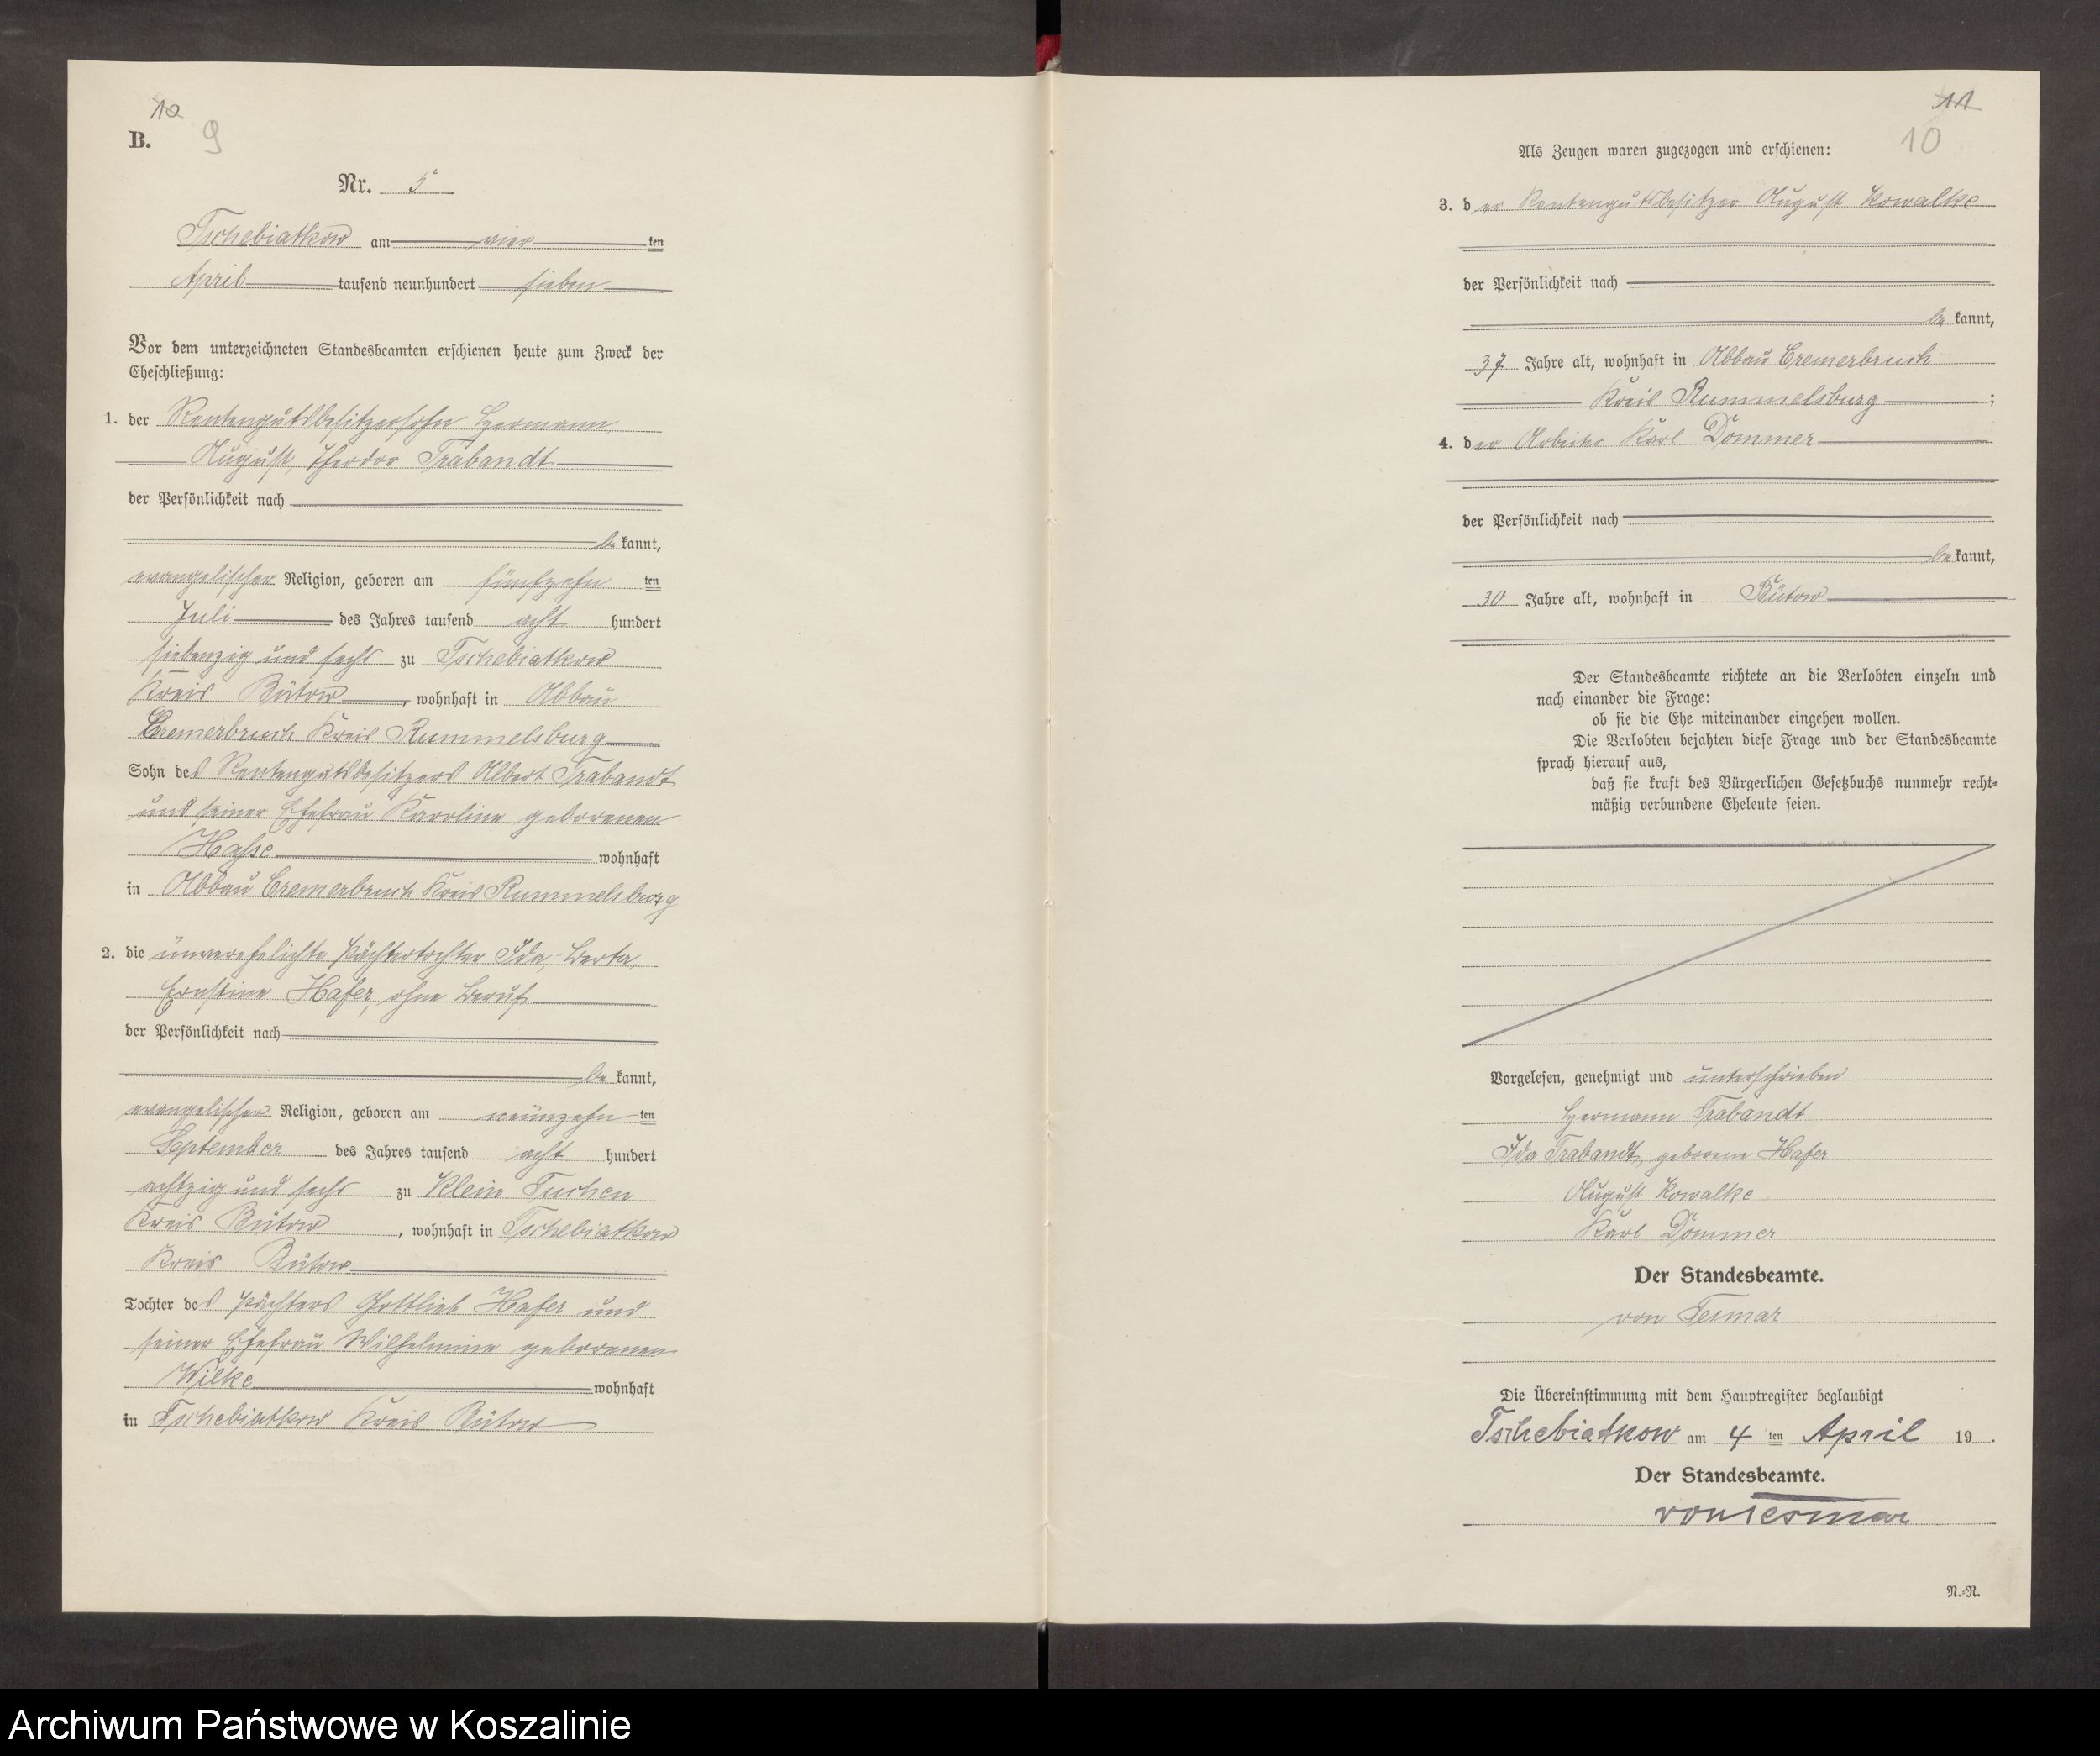 10
B.
9
Nr. 5
Tschebiatkow am vier ten
April tausend neunhundert sieben
Vor dem unterzeichneten Standesbeamten erschienen heute zum Zweck der
Eheschließung:
1. der Rentengutsbesitzersohn Hermann,
August, Theodor Trabandt
der Persönlichkeit nach
be kannt,
evangelischer Religion, geboren am fünfzehn ten
Juli des Jahres tausend acht hundert
siebenzig und sechs zu Tschebiatkow
Kreis Bütow, wohnhaft in Abbau
Cremerbruch Kreis Rummelsburg
Sohn des Rentengutsbesitzers Albert Trabandt
und seiner Ehefrau Karoline geborenen
Hasse wohnhaft
in Abbau Cremerbruch Kreis Rummelsburg
2. die unverehelichte Pächtertochter Ida, Berta,
Ernstine Hafer, ohne Beruf
der Persönlichkeit nach
be kannt,
evangelischer Religion, geboren am neunzehn ten
September des Jahres tausend acht hundert
achtzig und sechs zu Klein Tuchen
Kreis Bütow, wohnhaft in Tschebiatkow
Kreis Bütow
Tochter des Pächters Gottlieb Hafer und
seiner Ehefrau Wilhelmine geborenen
Wilke wohnhaft
in Tschebiatkow Kreis Bütow
11
10
Als Zeugen waren zugezogen und erschienen:
3. der Rentengutsbesitzer August Kowalke
der Persönlichkeit nach
be kannt,
37 Jahre alt, wohnhaft in Abbau Cremerbruch
Kreis Rummelsburg ;
4. der Arbeiter Karl Dommer
der Persönlichkeit nach
be kannt,
30 Jahre alt, wohnhaft in Bütow
Der Standesbeamte richtete an die Verlobten einzeln und
nach einander die Frage:
ob sie die Ehe miteinander eingehen wollen.
Die Verlobten bejahten diese Frage und der Standesbeamte
sprach hierauf aus,
daß sie kraft des Bürgerlichen Gesetzbuchs nunmehr recht-
mäßig verbundene Eheleute seien.
Vorgelesen, genehmigt und unterschrieben
Hermann Trabandt
Ida Trabandt, geborene Hafer
August Kowalke
Karl Dommer
Der Standesbeamte.
von Tesmar
Die Übereinstimmung mit dem Hauptregister beglaubigt
Tschebiatkow am 4 ten April 19 .
Der Standesbeamte.
von Tesmar
N.-N.
Archiwum Państwowe w Koszalinie